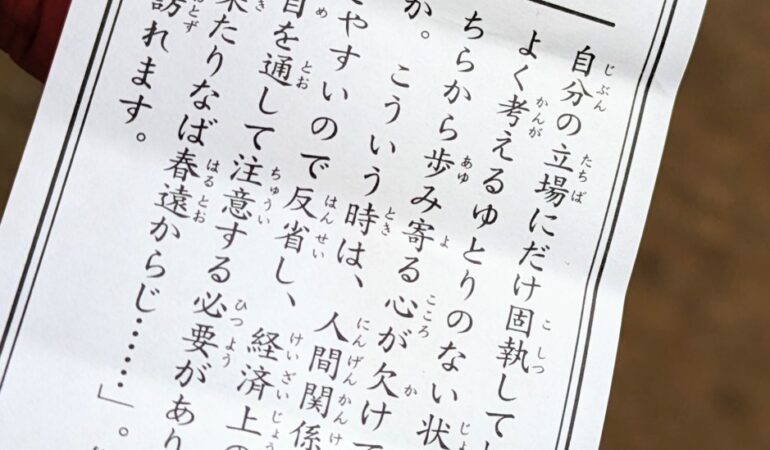 自分の立場にだけ固執して
よく考えるゆとりのない状
ちらから歩み寄る心が欠けて
か。こういう時は、人間関係
やすいので反省し、経済上の
目を通して注意する必要があり
来たりなば春遠からじ……」。
訪れます。